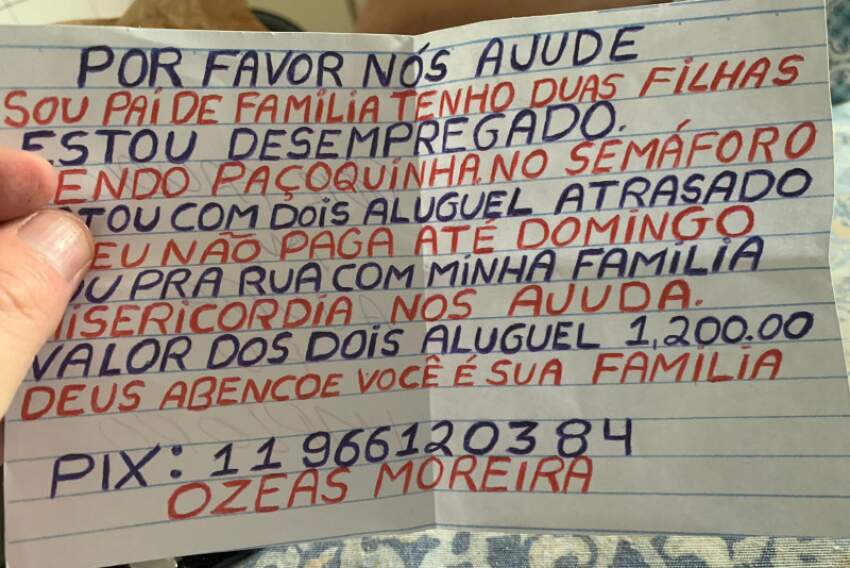 POR FAVOR NÓS AJUDE
SOU PAI DE FAMÍLIA TENHO DUAS FILHAS
ESTOU DESEMPREGADO.
ENDO PAÇOQUINHA.NO SEMÁFORO
TOU COM DOIS ALUGUEL ATRASADO
EU NÃO PAGA ATÉ DOMINGO
OU PRA RUA COM MINHA FAMILIA
MISERICORDIA NOS AJUDA.
VALOR DOS DOIS ALUGUEL 1,200.00
DEUS ABENCOE VOCÊ É SUA FAMILIA
PIX: 11 966120384
OZEAS MOREIRA